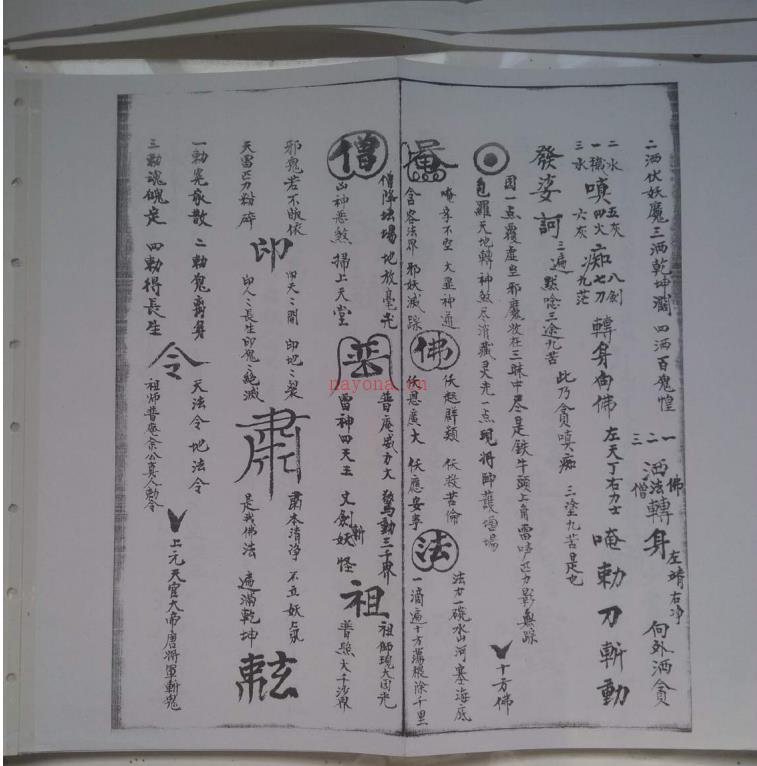 二洒伏妖魔三洒乾坤濶四洒百鬼惶
一二三洒佛法僧轉身左靖右净向外洒貪
一 二水 三水 嗔 四火 五灰 六灰 痴 七刀 八劍 九茫 轉身向佛 左天丁右力士 唵勅刀斬動
發娑訶 三遍 默唸三途九苦 此乃貪嗔痴 三塗九苦是也
因一点覆虛皇邪魔收在三昧中尽是鉄牛頭上角雷 影無踪
包羅天地轉神煞尽消藏灵光一点現將帥護壇場 十方佛
唵 不空 大显神通
含容法界 邪妖滅踪
佛
伏起群類 伏救苦倫
伏恩廣大 伏應安寧
法
法力一碗水山河塞海底
一滴遍十方蕩穢除千里
僧
僧降坛場地放毫光
凶神惡煞掃上天堂
普庵威力大 驚動三千界
雷神四天王 丈劍斬妖怪
祖
祖師現大圓光
普照大千沙界
邪鬼若不皈依
天雷 力粉碎
印
印天天開 印地地裂
印人人長生印鬼鬼絕滅
肅
肅本清净 不立妖氛
是我佛法 遍滿乾坤
一勅冤家散 二勅鬼 身
三勅魂魄定 四勅得長生
令
天法令 地法令
祖师普庵 公真人勅令
上元天官大帝唐將軍斬鬼
nayona.cn